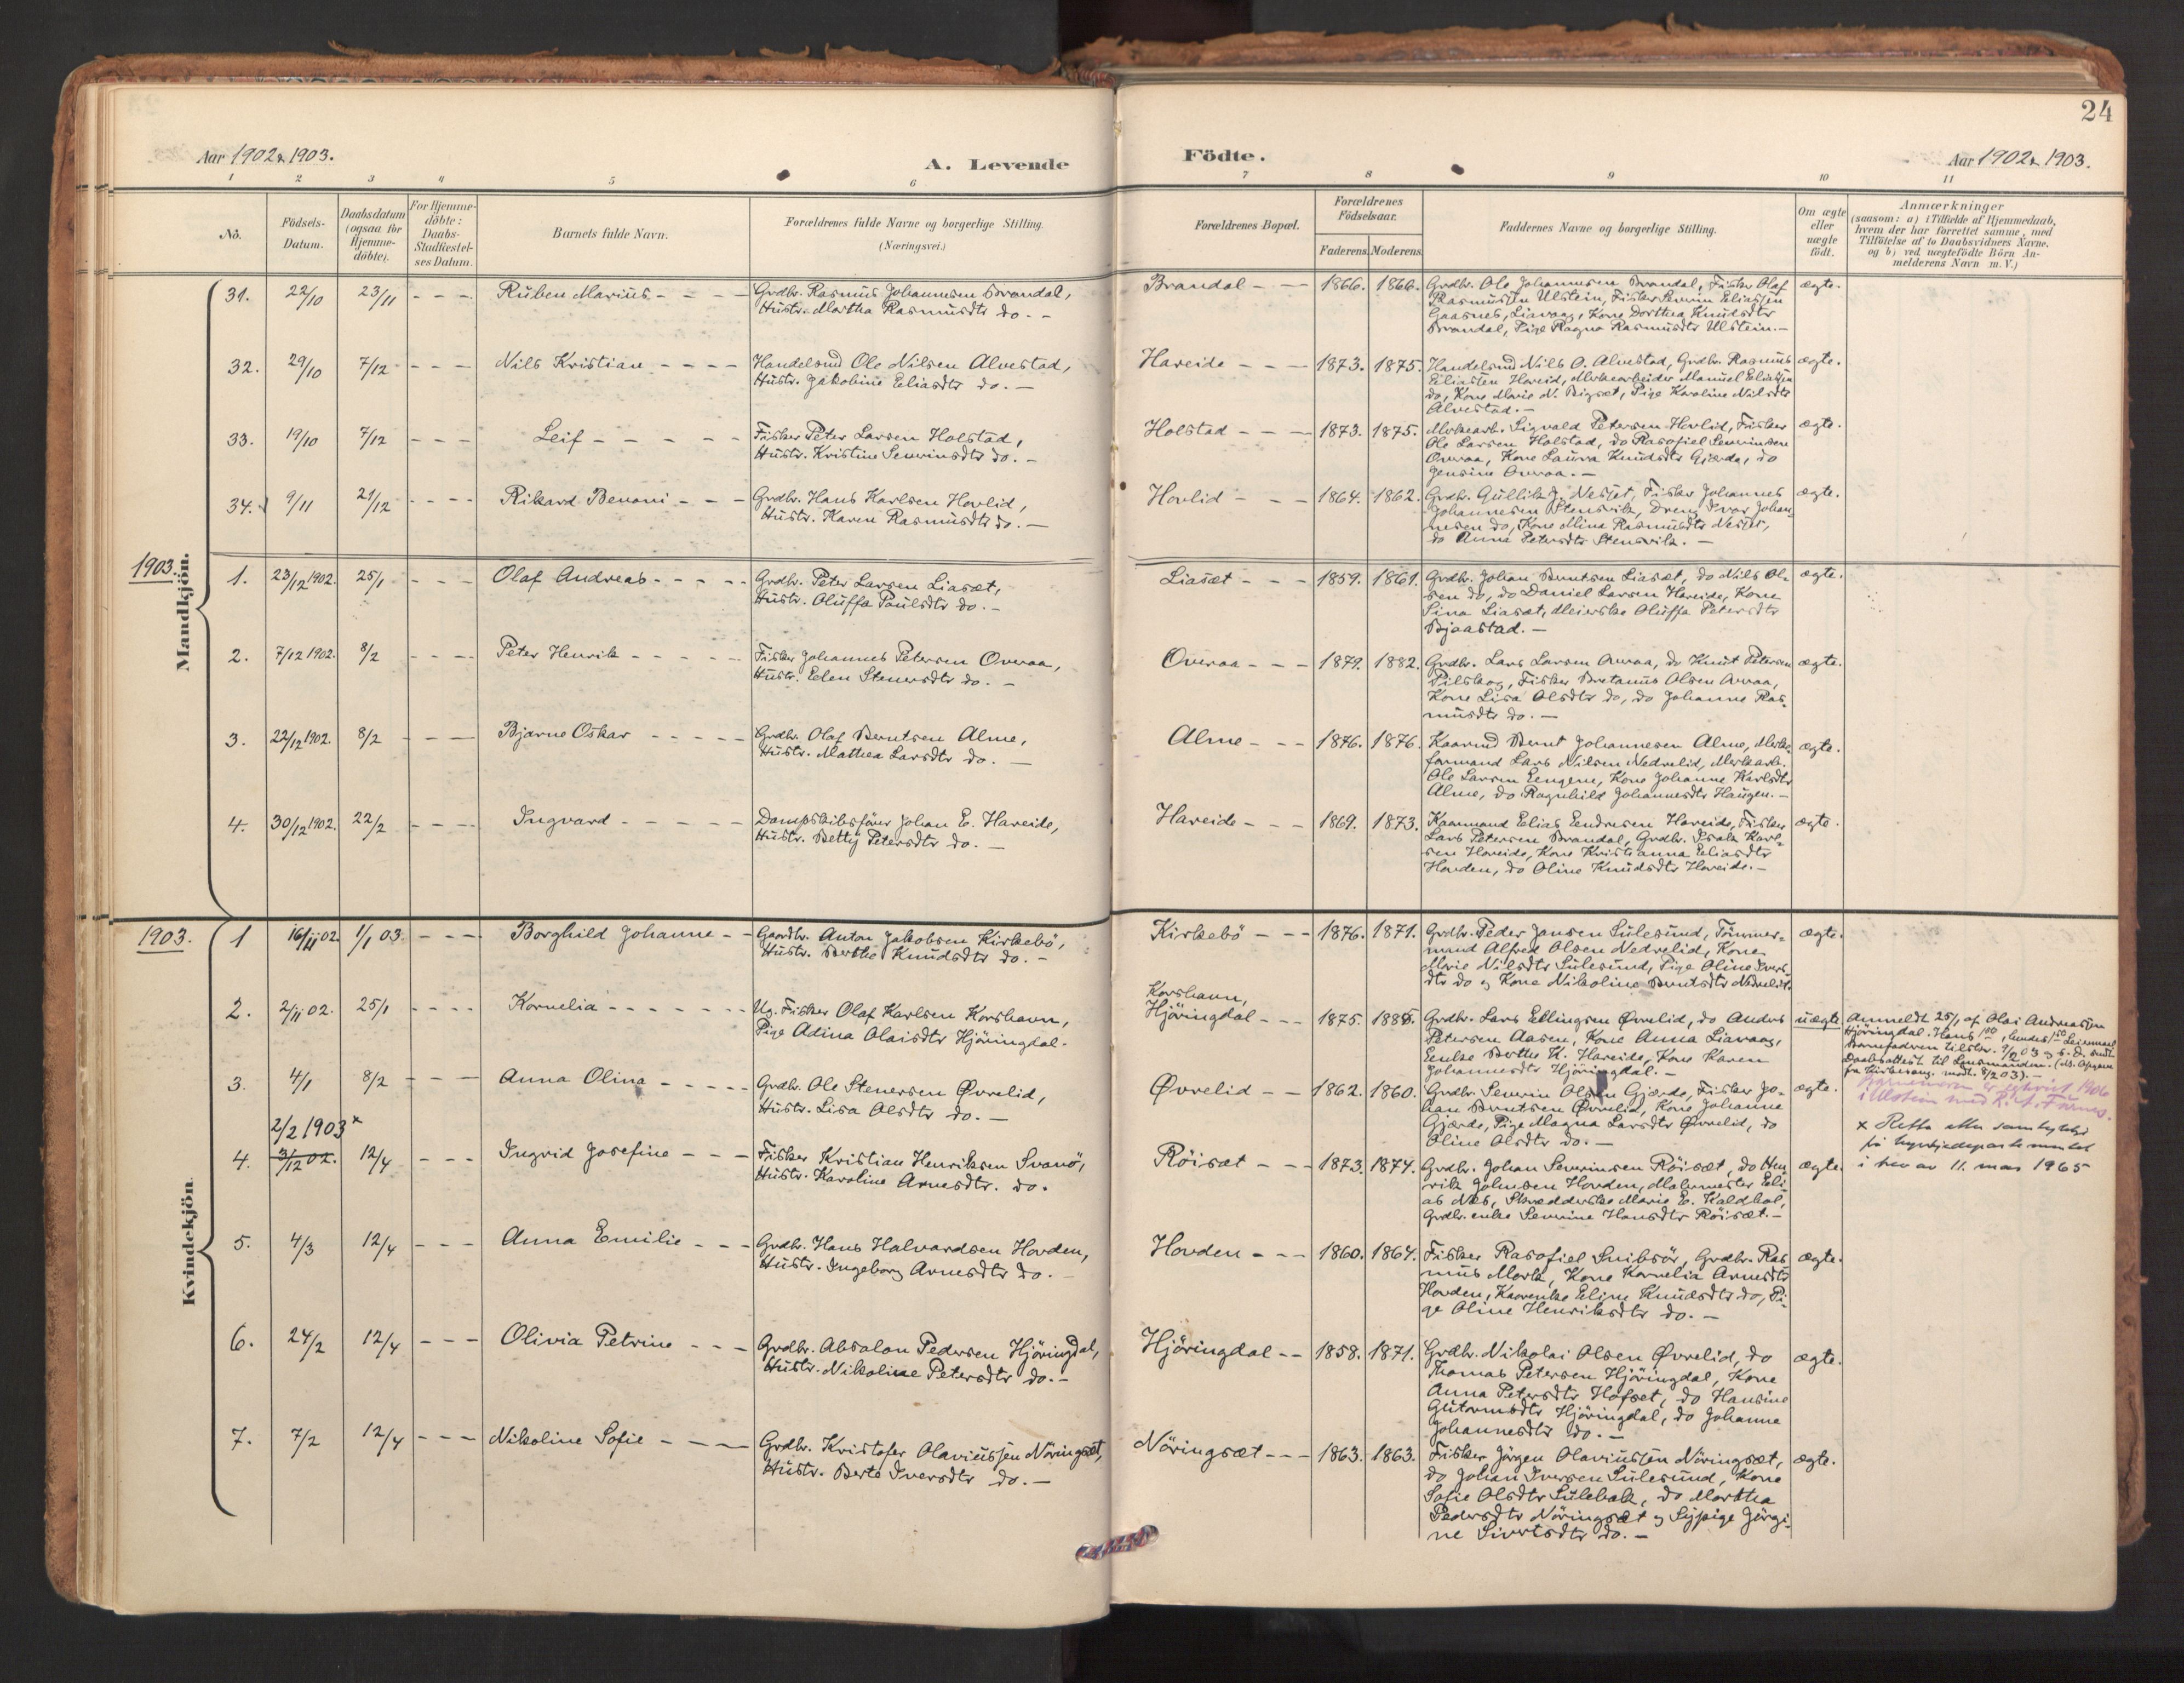 24
Aar 1902 & 1903.
A. Levende
Födte.
Aar 1902 & 1903.
1 2 3 4 5 6 7 8 9 10 11
No.
Födsels-
Datum.
Daabsdatum
(ogsaa for
Hjemme-
döbte).
For Hjemme-
döbte:
Daabs-
Stadfæstel-
ses Datum.
Barnets fulde Navn.
Forældrenes fulde Navne og borgerlige Stilling.
(Næringsvei.)
Forældrenes Bopæl.
Forældrenes
Födselsaar.
Faderens. Moderens.
Faddernes Navne og borgerlige Stilling.
Om ægte
eller
uægte
födt.
Anmærkninger
(saasom: a) i Tilfælde af Hjemmedaab,
hvem der har forrettet samme, med
Tilföielse af to Daabsvidners Navne.
og b) ved uægtefödte Börn An-
melderens Navn m. V.)
Mandkjön.
31. 22/10 23/11 - - - Ruben Marius - - - -
Grdbr. Rasmus Johannesen Brandal,
Hustr. Martha Rasmusdtr do. -
Brandal - - - 1866. 1866.
Grdbr. Ole Johannesen Brandal, Fisker Olaf
Rasmussen Ulstein, Fisker Severin Eliassen
Gaasnes, Liavaag, Kone Dorthea Knudsdtr
Brandal, Pige Ragna Rasmusdtr Ulstein. -
ægte.
32. 29/10 7/12 - - - Nils Kristian - - - -
Handelsmd Ole Nilsen Alvestad,
Hustr. Jakobine Eliasdtr do. -
Hareide - - - 1873. 1875.
Handelsmd Nils O. Alvestad, Grdbr. Rasmus
Eliassen Hareid, Mekearbeider Manuel Eliassen
do, Kone Marie N. Bigset, Pige Karoline Nilsdtr
Alvestad. -
ægte.
33. 19/10 7/12 - - - Leif - - - - -
Fisker Peter Larsen Holstad,
Hustr. Kristine Severinsdtr do. -
Holstad - - - 1873. 1875.
Mekearb. Sigvald Petersen Hovlid, Fisker
Ole Larsen Holstad, do Rasofiel Severinsen
Overaa, Kone Laura Knudsdtr Gjærde, do
Jensine Overaa. -
ægte.
34. 9/11 21/12 - - - - Rikard Benoni - - -
Grdbr. Hans Karlsen Hovlid,
Hustr. Karen Rasmusdtr do. -
Hovlid - - - 1864. 1862.
Grdbr. Gullik J. Nesset, Fisker Johannes
Johannesen Stensvik, Dreng Ivar Johan-
nesen do, Kone Mina Rasmusdtr Nesset,
do Anna Petersdtr Stensvik. -
ægte.
1903.
1. 23/12 1902. 25/1 - - - Olaf Andreas - - - - -
Grdbr. Peter Larsen Liasæt,
Hustr. Oluffa Paulsdtr do. -
Liasæt - - - 1859. 1861.
Grdbr. Johan Berntsen Liasæt, do Nils Ol-
sen do, do Daniel Larsen Hareide, Kone
Sina Liasæt, Meierske Oluffa Petersdtr
Bjaastad. -
ægte.
2. 7/12 1902. 8/2 - - - - Peter Henrik - - - - -
Fisker Johannes Petersen Overaa,
Hustr. Elen Stenersdtr do. -
Overaa - - - 1879. 1882.
Grdbr. Lars Larsen Overaa, do Knut Petersen
Pilskog, Fisker Bretanus Olsen Overaa,
Kone Lisa Olsdtr do, do Johanne Ras-
musdtr do. -
ægte.
3. 22/12 1902. 8/2 - - - Bjarne Oskar - - - - -
Grdbr. Olaf Berntsen Alme,
Hustr. Mathea Larsdtr do. -
Alme - - - 1876. 1876.
Kaarmd Bernt Johannesen Alme, Meke-
formand Lars Nilsen Nedrelid, Mekearb.
Ole Larsen Eengene, Kone Johanne Karlsdtr
Alme, do Ragnhild Johannesdtr Haugen. -
ægte.
4. 30/12 1902. 22/2 - - - - Ingvard - - - - -
Dampskibsförer Johan E. Hareide,
Hustr. Betty Petersdtr do. -
Hareide - - - 1869. 1873.
Kaarmand Elias Endresen Hareide, Fisker
Lars Petersen Brandal, Grdbr. Isak Karl-
sen Hareide, Kone Kristianna Eliasdtr
Hovden, do Oline Knudsdtr Hareide. -
ægte.
1903.
Kvindekjön.
1 16/11 02. 1/1 03 - - - Borghild Johanne - -
Gaardbr. Anton Jakobsen Kirkebö,
Hustr. Berthe Knudsdtr do. -
Kirkebö - - - 1876. 1871.
Grdbr. Peder Jansen Sulesund, Tömmer-
mand Alfred Olsen Nedrelid, Kone
Marie Nilsdtr Sulesund, Pige Oline Ivers-
dtr do og Kone Nikoline Berntsdtr Nedrelid.
ægte.
2. 2/11 02. 25/1 - - - - Kornelia - - - - - - -
Ug. Fisker Olaf Karlsen Korshavn,
Pige Adina Olaisdtr Hjöringdal.
Korshavn,
Hjöringdal - - - 1875. 1885.
Grdbr. Lars Ellingsen Øvrelid, do Anders
Petersen Aasen, Kone Anna Liavaag,
Enke Berthe K. Hareide, Kone Karen
Johannesdtr Hjöringdal. -
uægte
Anmeldt 25/1 af Olai Andreassen
Hjöringdal. Hans 1ste, hendes 1ste Leiermaal
Barnefadren tilstr.
Daabsattest til Lensmanden.
i Ulstein
3. 4/1 8/2 - - - Anna Olina - - - - -
Grdbr. Ole Stenersen Øvrelid,
Hustr. Lisa Olsdtr do. -
Øvrelid - - 1862. 1860.
Grdbr. Severin Olsen Gjærde, Fisker Jo-
han Berntsen Øvrelid, Kone Johanne
Gjærde, Pige Magna Larsdtr Øvrelid, do
Oline Olsdtr do. -
ægte.
2/2 1903 x
4. 3/12 02. 12/4 - - - Ingrid Josefine - - -
Fisker Kristian Henriksen Svanö,
Hustr. Karoline Arnesdtr. do.
Röisæt - - - 1873. 1874.
Grdbr. Johan Severinsen Röisæt, do Hen-
rik Johnsen Hovden, Malermester Eli-
as Nes, Skrædderske Marie E. Kaldhol,
Grdbr. enke Severine Hansdtr Röisæt. -
ægte.
x Retta etter samtykke
frå kyrkjedepartementet
i brev av 11. mars 1965
5. 4/3 12/4 - - - Anna Emilie - - -
Grdbr. Hans Halvardsen Hovden,
Hustr. Ingeborg Arnesdtr do. -
Hovden - - - 1860. 1864.
Fisker Rasofiel Snibsör, Grdbr. Ras-
mus Mork, Kone Kornelia Arnesdtr
Hovden, Kaarenke Eline Knudsdtr do, Pi-
ge Oline Henriksdtr do. -
ægte.
6. 24/2 12/4 - - - Olivia Petrine - - -
Grdbr. Absalon Pedersen Hjöringdal,
Hustr. Nikoline Petersdtr do. -
Hjöringdal - - 1858. 1871.
Grdbr. Nikolai Olsen Øvrelid, do
Thomas Petersen Hjöringdal, Kone
Anna Petersdtr Hofset, do Hansine
Gutormsdtr Hjöringdal, do Johanne
Johannesdtr do. -
ægte.
7. 7/2 12/4 - - - Nikoline Sofie - - - -
Grdbr. Kristofer Olavinssen Nöringsæt,
Hustr. Berte Iversdtr do. -
Nöringsæt - - - 1863. 1863.
Fisker Jörgen Olavinssen Nöringsæt,
do Johan Iversen Sulesund, Kone
Sofie Olsdtr Sulebak, do Martha
Pedersdtr Nöringsæt og Sypige Jörgi-
ne Sivertsdtr do. -
ægte.